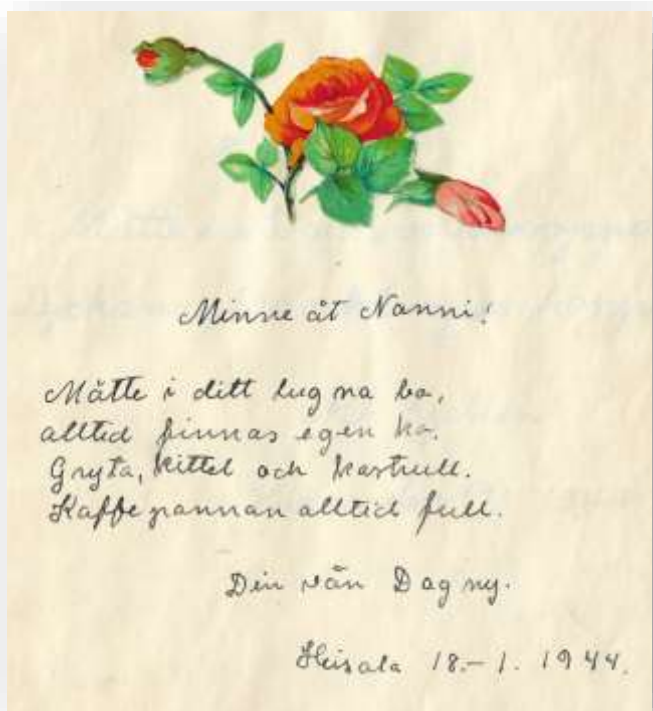 Minne åt Nanni!
Måtte i ditt lugna bo,
alltid finnas egen ko.
Gryta, kittel och kastrull.
Kaffepannan alltid full.
Din vän Dagny.
Heisala 18.-1. 1944.